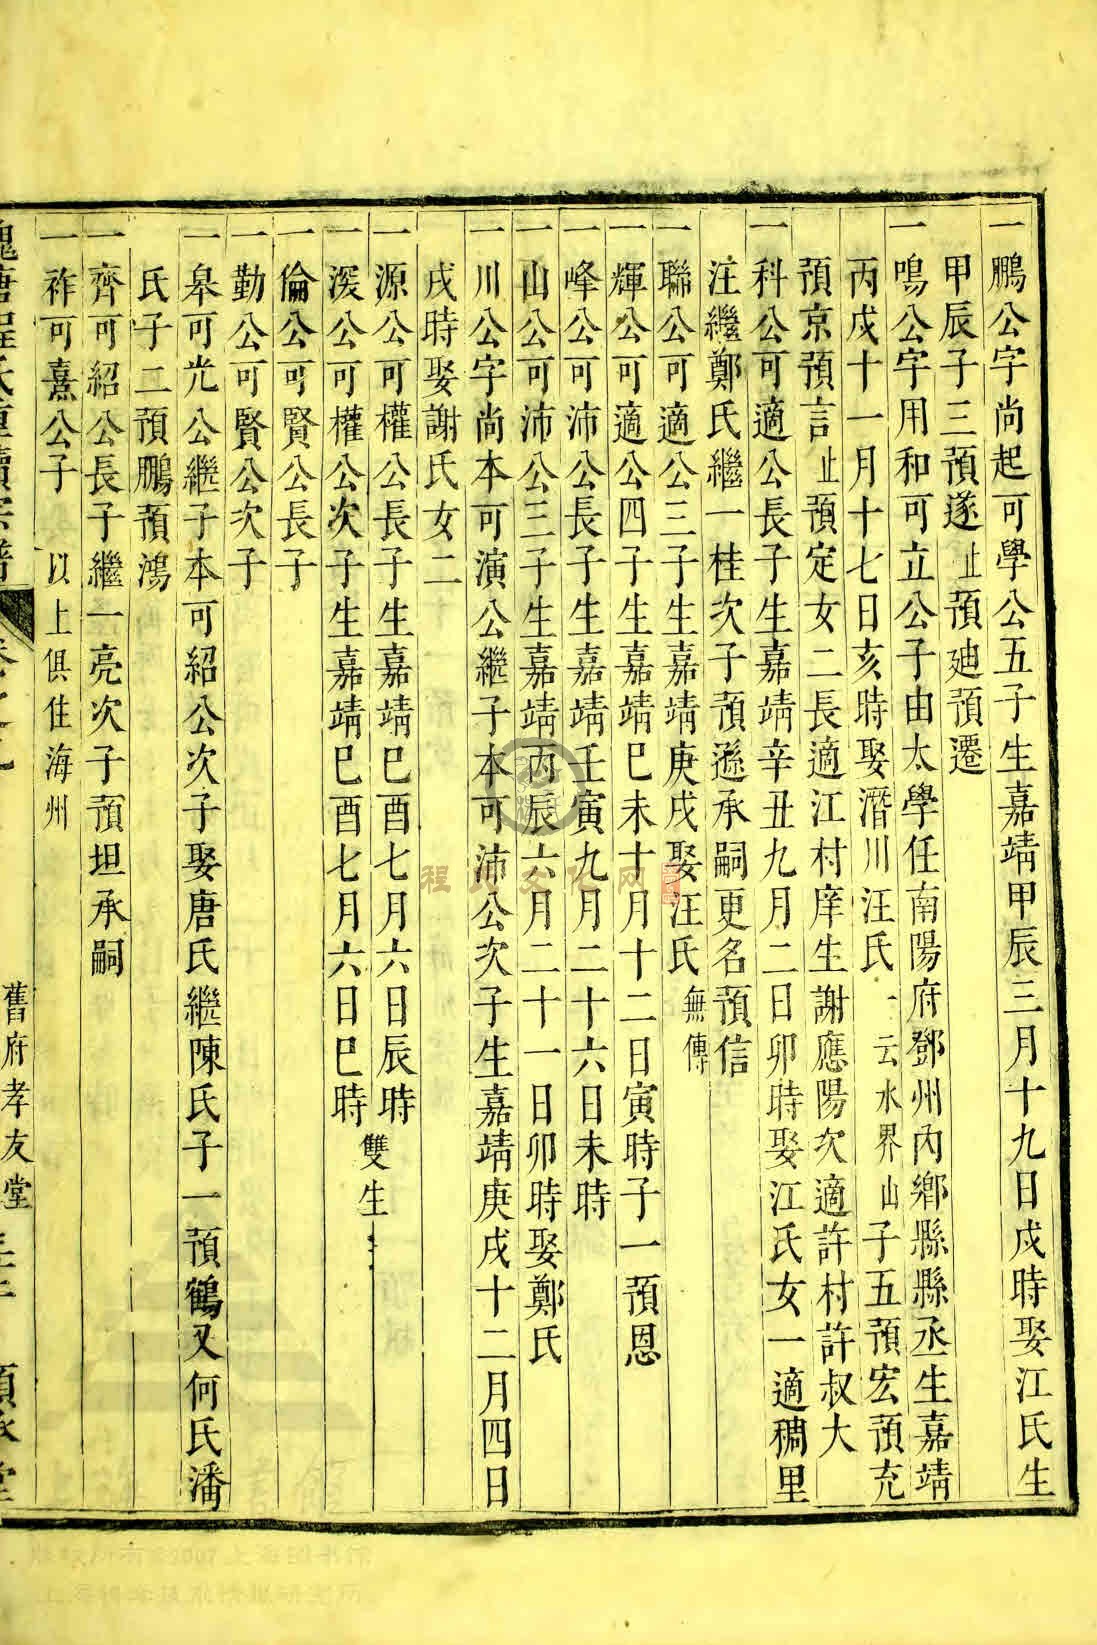 一鵬公字尚起可學公五子生嘉靖甲辰三月十九日戌時娶江氏生
甲辰子三預遂止預廸預遷
一鳴公字用和可立公子由太學任南陽府鄧州內鄉縣縣丞生嘉靖
丙戌十一月十七日亥時娶潛川汪氏一云水界山子五預宏預充
預京預言止預定女二長適江村庠生謝應陽次適許村許叔大
一科公可適公長子生嘉靖辛丑九月二日卯時娶江氏女一適稠里
注繼鄭氏繼一桂次子預遜承嗣更名預信
一聯公可適公三子生嘉靖庚戌娶汪氏無傳
一輝公可適公四子生嘉靖巳未十月十二日寅時子一預恩
一峰公可沛公長子生嘉靖壬寅九月二十六日未時
一山公可沛公三子生嘉靖丙辰六月二十一日卯時娶鄭氏
一川公字尚本可演公繼子本可沛公次子生嘉靖庚戌十二月四日
戌時娶謝氏女二
一源公可權公長子生嘉靖巳酉七月六日辰時
一深公可權公次子生嘉靖巳酉七月六日巳時
雙生
一倫公可賢公長子
一勤公可賢公次子
一皋可光公繼子本可紹公次子娶唐氏繼陳氏子一預鶴又何氏潘
氏子二預鵬預鴻
一齊可紹公長子繼一亮次子預坦承嗣
一祚可熹公子以上俱住海州
舊府孝友堂
程氏文化网
版权所有©2007上海图书馆